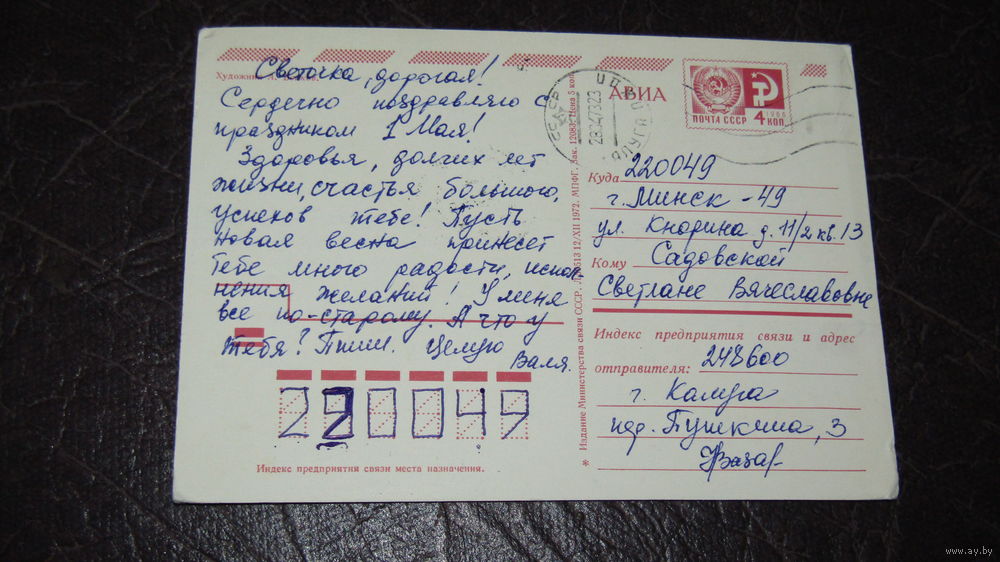 Художник
Светочка, дорогая!
Сердечно поздравляю с
праздником 1 Мая!
Здоровья, долгих лет
жизни, счастья большого,
успехов тебе! Пусть
новая весна принесет
тебе много радости, испол-
нения желаний! У меня
все по-старому. А что у
тебя? Пиши. Целую
Валя.
220049
Индекс предприятия связи места назначения.
* Издание Министерства связи СССР. 12/XII 1972. МПФГ. Зак. 12083. Цена 5 коп.
СССР
АВИА
ПОЧТА СССР
1966
4 КОП.
Куда 220049
г. Минск-49
ул. Кнорина д. 11/2 кв. 13
Кому Садовской
Светлане Вячеславовне
Индекс предприятия связи и адрес
отправителя: 248600
г. Калуга
пер. Пушкина, 3
www.ay.by